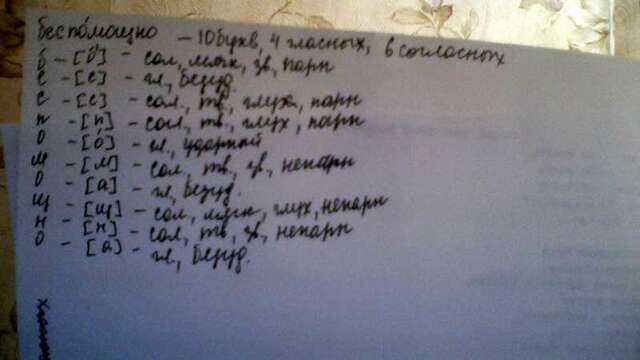 беспо́мощно - 10 букв, 4 гласных, 6 согласных
б - [б'] - сол, мягк, зв, парн
е - [е] - гл, безуд.
с - [с] - сол, тв, глух, парн
п - [п] - согл, тв, глух, парн
о - [о́] - гл, ударный
м - [м] - сол, тв, зв, непарн
о - [а] - гл, безуд.
щ - [щ] - сол, мягк, глух, непарн
н - [н] - сол, тв, зв, непарн
о - [а] - гл, безуд.